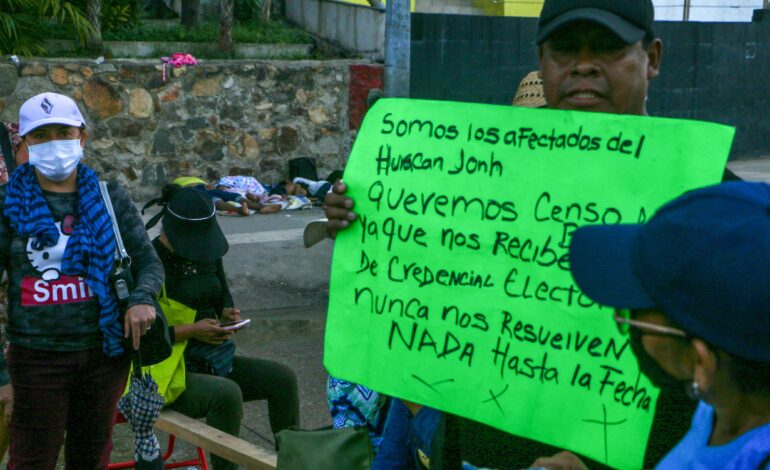 Somos los afectados del
Huracan Jonh
Queremos Censo
ya que nos
De Credencial
nunca nos Resuelven
NADA Hasta la Fecha
Smil